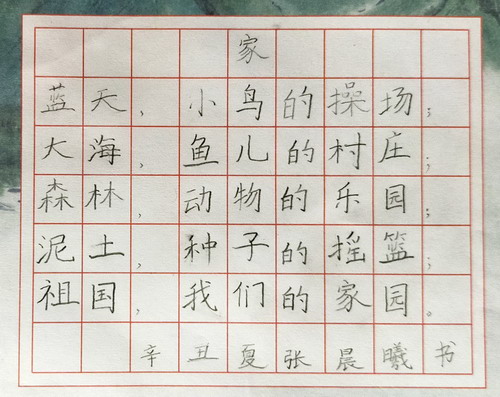 家
蓝天，小鸟的操场；
大海，鱼儿的村庄；
森林，动物的乐园；
泥土，种子的摇篮；
祖国，我们的家园。
辛丑夏张晨曦书